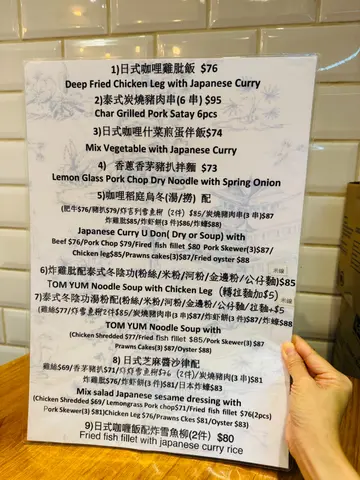 1)日式咖哩雞髀飯 $76
Deep Fried Chicken Leg with Japanese Curry
2)泰式炭燒豬肉串(6 串) $95
Char Grilled Pork Satay 6pcs
3)日式咖哩什菜煎蛋伴飯$74
Mix Vegetable with Japanese Curry
4) 香蔥香茅豬扒拌麵 $73
Lemon Glass Pork Chop Dry Noodle with Spring Onion
5)咖哩稻庭烏冬(湯/撈) 配
(肥牛$76/豬扒$79/炸吉列雪魚柳 (2件) $85/炭燒豬肉串(3 串)$87
炸雞髀$85/炸蝦餅(3 件)$86/炸蠔$88)
Japanese Curry U Don( Dry or Soup) with
Beef $76/Pork Chop $79/Fired fish fillet $80 Pork Skewer(3)$87/
Chicken leg$85/Prawns cakes(3)$87/Fried oyster $88)
米線
6)炸雞髀配泰式冬陰功(粉絲/米粉/河粉/金邊粉/公仔麵)$85
TOM YUM Noodle Soup with Chicken Leg (轉拉麵加$5)
米線
7)泰式冬陰功湯粉配(粉絲/米粉/河粉/金邊粉/公仔麵/拉麵+$5
(雞絲$77/炸雪魚柳2件$85/炭燒豬肉串(3 串)$87/炸蝦餅(3 件)$87/炸蠔$88
TOM YUM Noodle Soup with
(Chicken Shredded $77/Fried fish fillet $85/Pork Skewer(3) $87
Prawns Cakes(3) $87/Oyster $88)
8) 日式芝麻醬沙律配
雞絲$69/香茅豬扒$71/炸雪魚柳$76 (2件)/炭燒豬肉串(3 串)$81
炸雞髀$76/炸蝦餅(3 件)$81/日本炸蠔$83
Mix salad Japanese sesame dressing with
(Chicken Shredded $69/ Lemongrass Pork chop$71/Fried fish fillet $76(2pcs)
Pork Skewer(3) $81)Chicken Leg $76/Prawns Ckes $81/Oyster $83)
9)日式咖喱飯配炸雪魚柳(2件) $80
Fried fish fillet with japanese curry rice